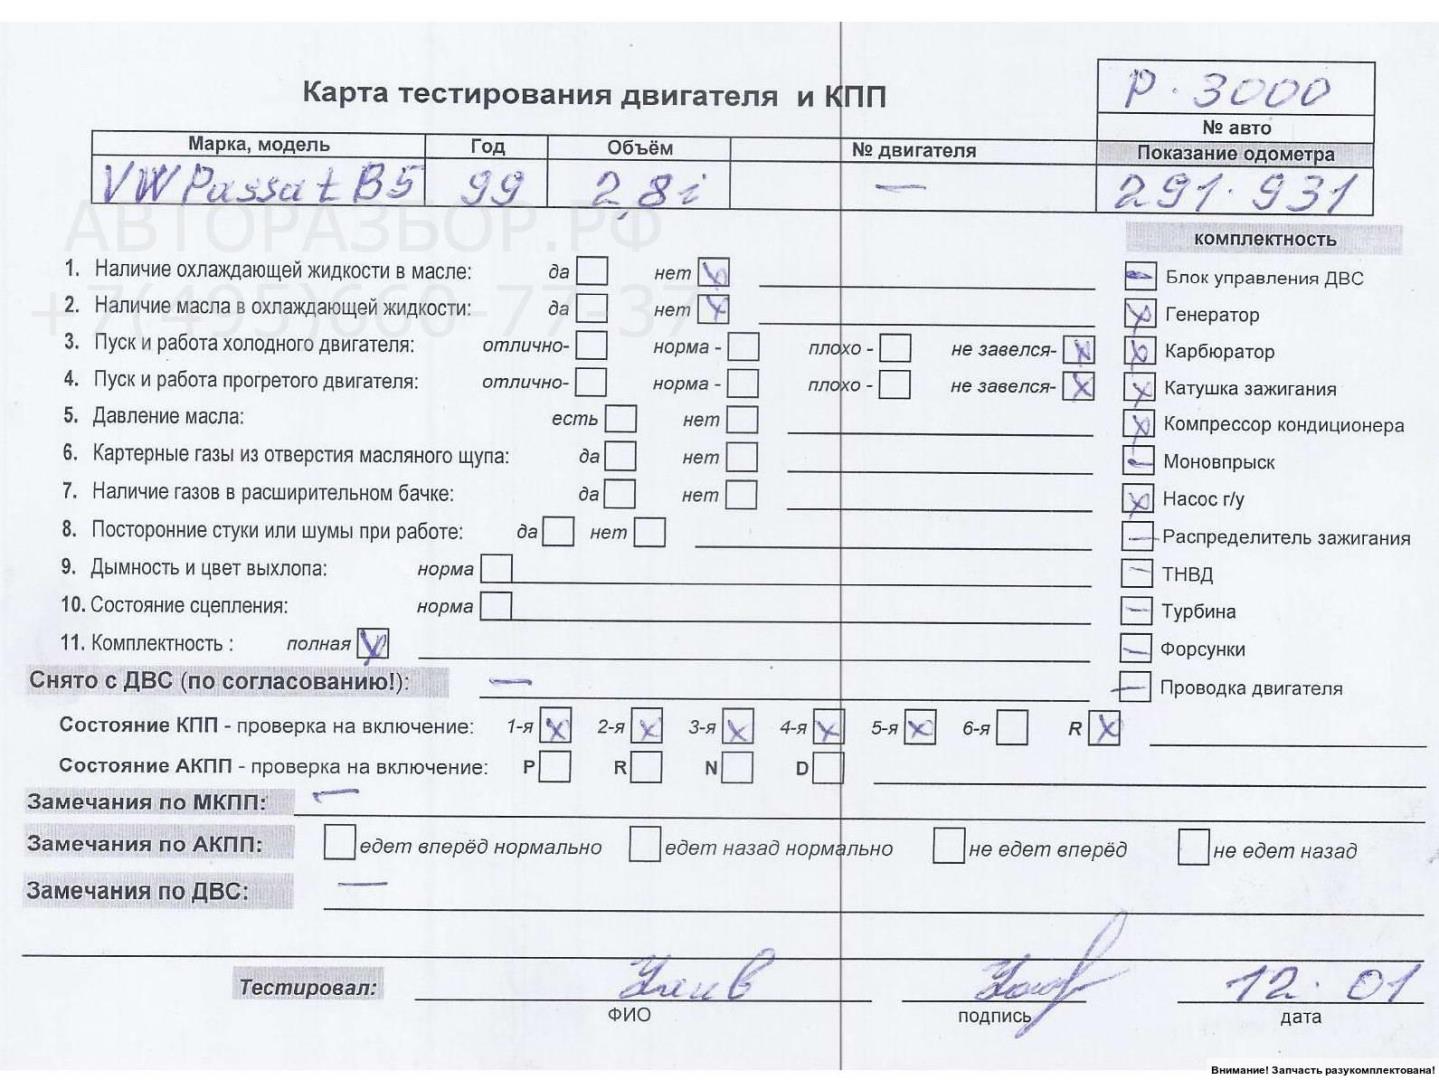 Карта тестирования двигателя и КПП
Р. 3000
№ авто
Марка, модель Год Объём № двигателя Показание одометра
VW Passat B5 99 2,8i — 291.931
АВТОРАЗБОР.РФ
комплектность
1. Наличие охлаждающей жидкости в масле: да нет
Блок управления ДВС
2. Наличие масла в охлаждающей жидкости: да нет
Генератор
3. Пуск и работа холодного двигателя: отлично- норма - плохо - не завелся-
Карбюратор
4. Пуск и работа прогретого двигателя: отлично- норма - плохо - не завелся-
Катушка зажигания
5. Давление масла: есть нет
Компрессор кондиционера
6. Картерные газы из отверстия масляного щупа: да нет
Моновпрыск
7. Наличие газов в расширительном бачке: да нет
Насос г/у
8. Посторонние стуки или шумы при работе: да нет
Распределитель зажигания
9. Дымность и цвет выхлопа: норма
ТНВД
10. Состояние сцепления: норма
Турбина
11. Комплектность : полная
Форсунки
Снято с ДВС (по согласованию!): —
Проводка двигателя
Состояние КПП - проверка на включение: 1-я 2-я 3-я 4-я 5-я 6-я R
Состояние АКПП - проверка на включение: P R N D
Замечания по МКПП: —
Замечания по АКПП: едет вперёд нормально едет назад нормально не едет вперёд не едет назад
Замечания по ДВС: —
Тестировал: 12.01
ФИО подпись дата
Внимание! Запчасть разукомплектована!